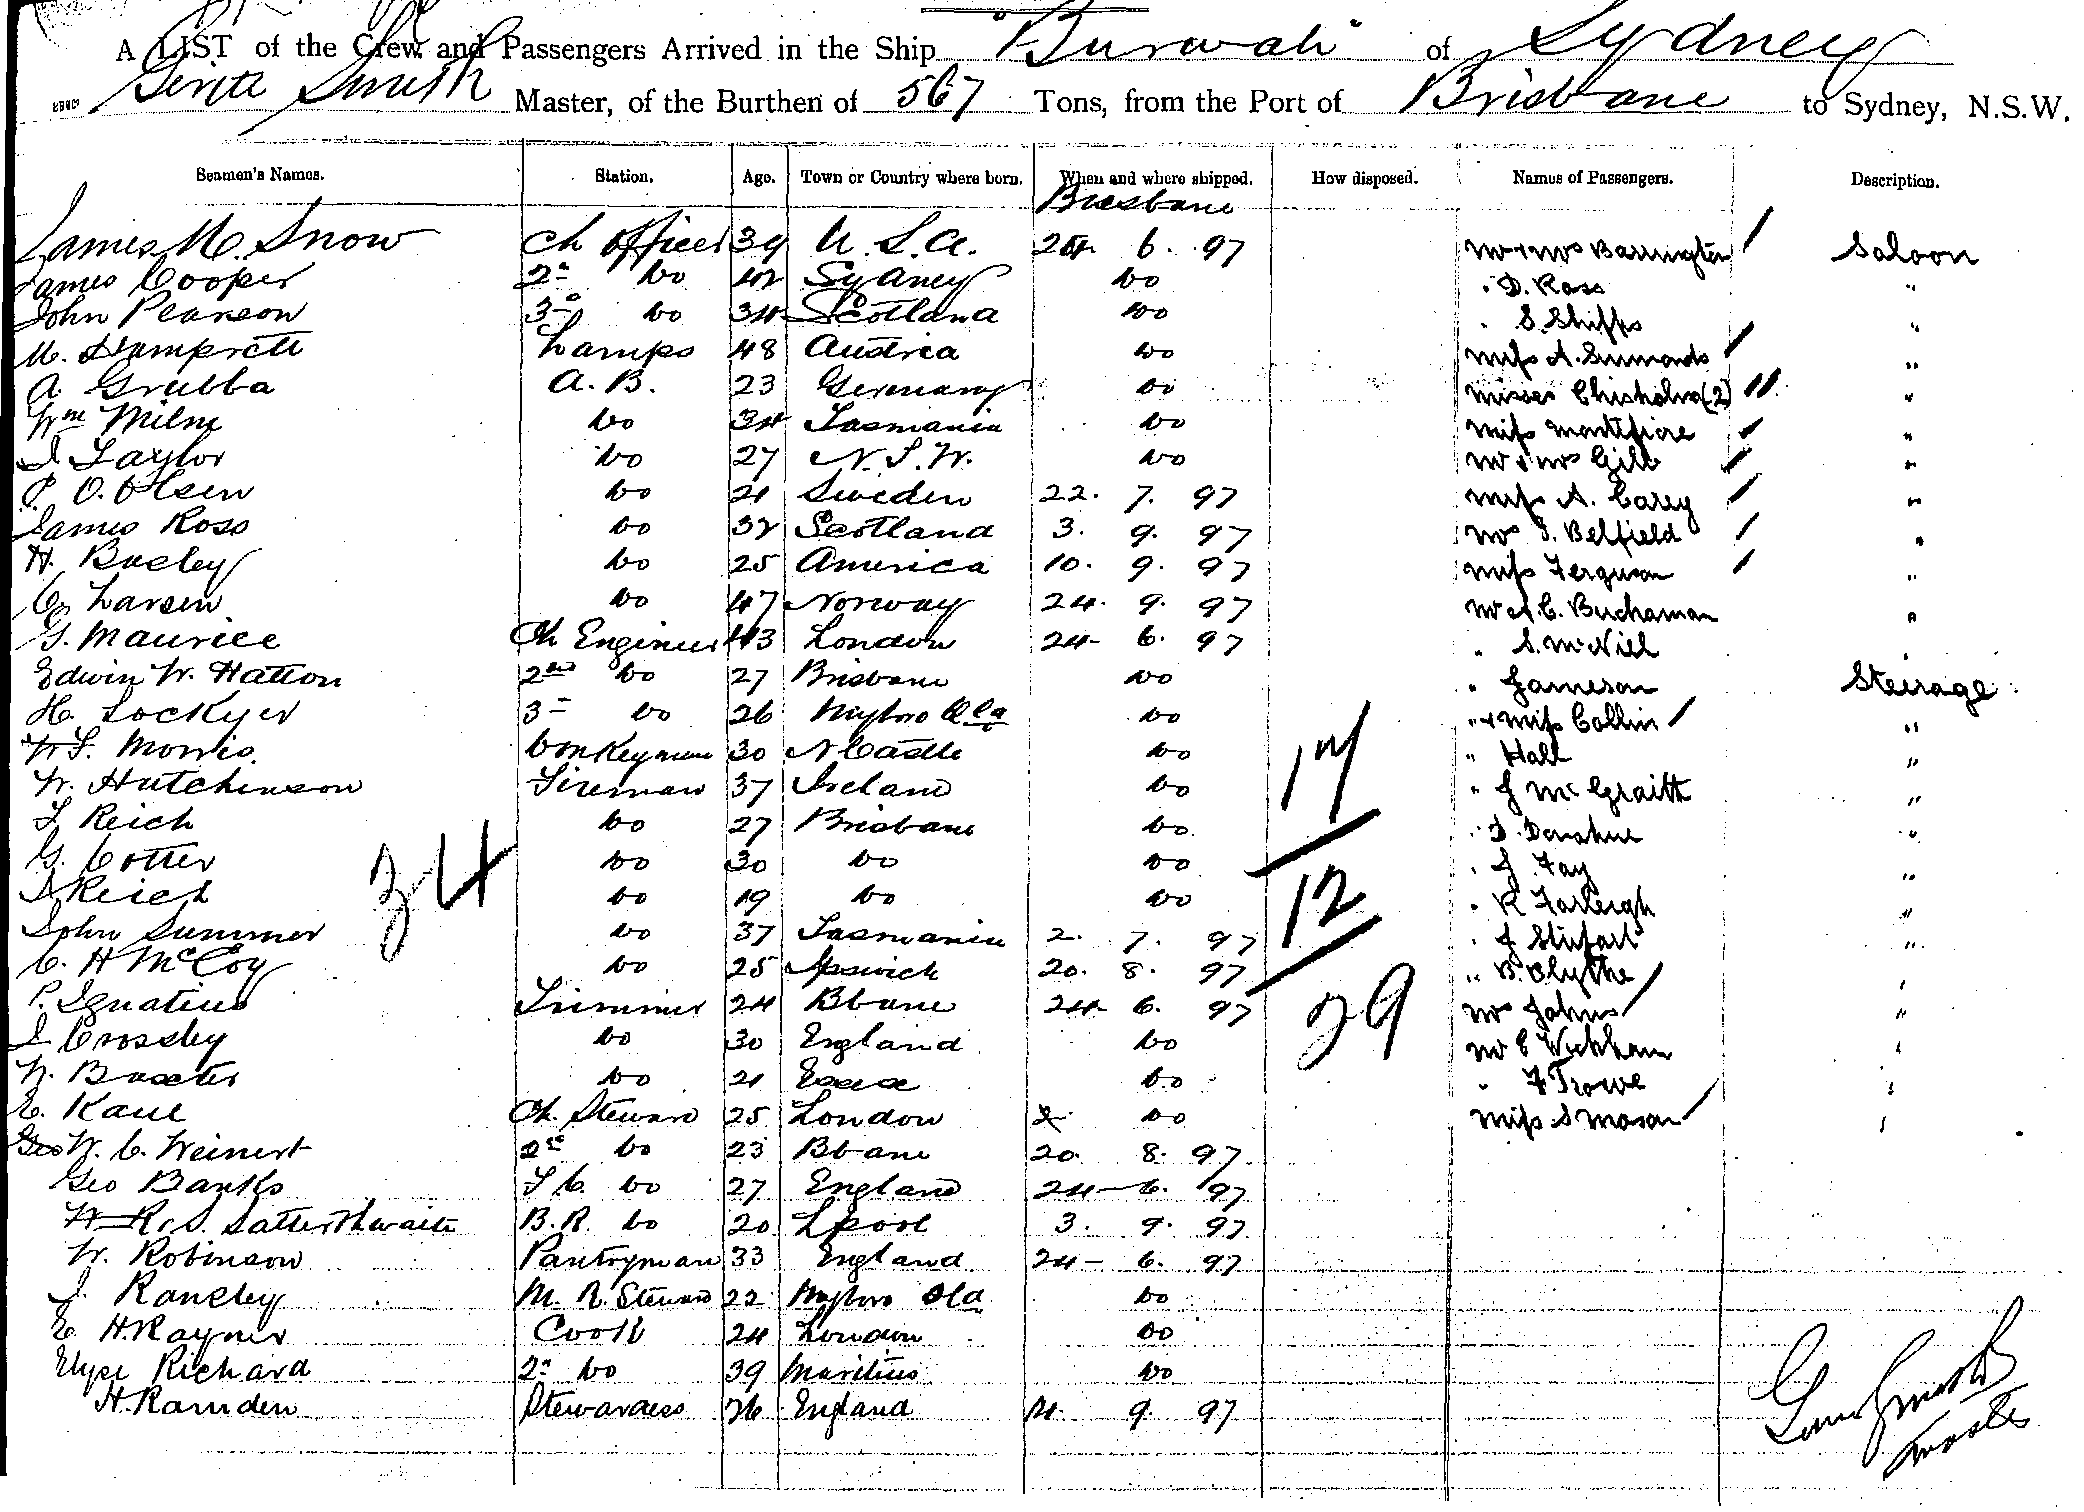 A LIST of the Crew and Passengers Arrived in the Ship "Burwah" of Sydney
Smith Master, of the Burthen of 567 Tons, from the Port of Brisbane to Sydney, N.S.W.
Seamen's Names. Station. Age. Town or Country where born. When and where shipped. How disposed. Names of Passengers. Description.
Brisbane
James M. Snow Ch Officer 39 U.S.A. 24. 6. 97 Mr & Mrs Barrington Saloon
James Cooper 2nd Do 42 Sydney Do " D. Ross "
John Pearson 3rd Do 34 Scotland Do " S. Shipps "
Lamps 48 Austria Do Miss A. Simmonds "
A Grubba A.B. 23 Germany Do Misses Chisholm (2) "
Wm Milne Do 34 Tasmania Do Miss Montifiore "
J Taylor Do 27 N.S.W. Do Mr & Mrs Gill "
P. O. Olsen Do 21 Sweden 22. 7. 97 Miss A. Carey "
James Ross Do 32 Scotland 3. 9. 97 Mrs S. Belfield "
H. Bexley Do 25 America 10. 9. 97 Miss Ferguson "
C. Larsen Do 47 Norway 24. 9. 97 Mr A. C. Buchanan "
G. Maurice Ch Engineer 43 London 24- 6. 97 " S. McNeill "
Edwin W. Hatton 2nd Do 27 Brisbane Do " Jameson Steerage
H. Lockyer 3rd Do 26 Myboro Qld Do " & Miss Collin "
W F. Morris Donkeyman 30 N Castle Do " Hall "
W. Hutchinson Fireman 37 Ireland Do " J McGraith "
F Reich Do 27 Brisbane Do " D. Donohue "
G. Cotter Do 30 Do Do " J. Fay "
J Reich Do 19 Do Do " R Farleigh "
John Summer Do 37 Tasmania 2. 7. 97 " J "
C. H McCoy Do 25 Ipswich 20. 8. 97 " B. Blythe "
P. Ignatius Trimmer 24 Bbane 24- 6. 97 Mrs Johns "
J Crossley Do 30 England Do Mr E Wickham "
W. Baxter Do 21 Essex Do " F Trowe "
E. Kane Ch. Steward 25 London Do Miss S Mason "
W. C. Weinert 2nd Do 23 Bbane 20. 8. 97
Geo Banks F C. Do 27 England 24-6. 97
R. S. Satterthwaite B.R. Do 20 Lpool 3. 9. 97
W. Robinson Pantryman 33 England 24- 6. 97
J. Ransley M. R. Steward 22 Myboro Qld Do
E. H. Rayner Cook 24 London Do
Elyse Richard 2nd Do 39 Mauritius Do
H. Ramden Stewardess 36 England 9. 97
34
17
12
29
Smith
Master